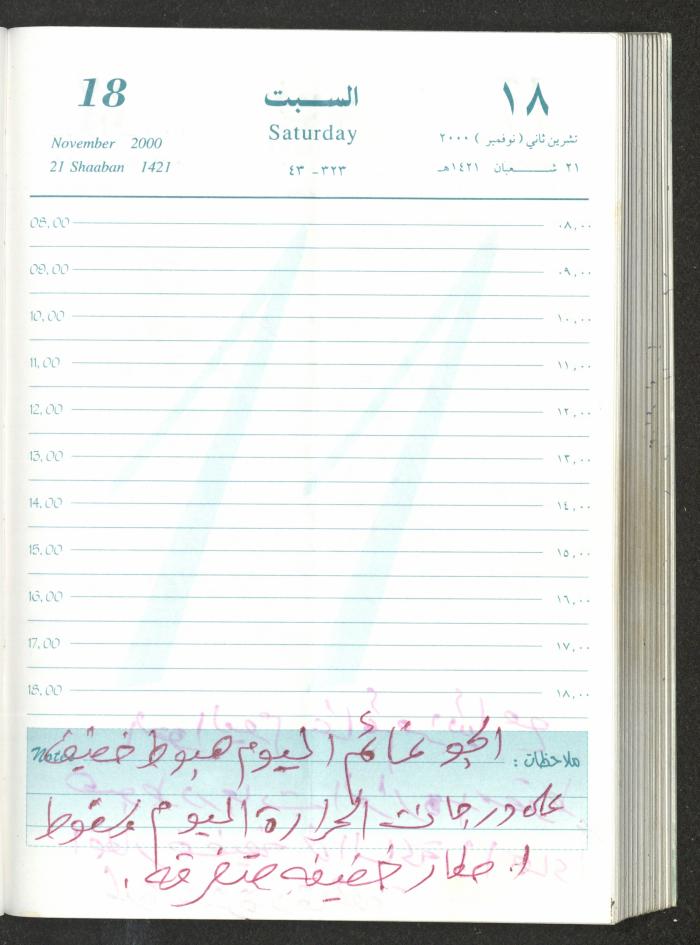 18 السبت ١٨
November 2000 Saturday تشرين ثاني ( نوفمبر ) ٢٠٠٠
21 Shaaban 1421 ٤٣ - ٣٢٣ ٢١ شعبان ١٤٢١هـ
08.00 ٠٨,٠٠
09.00 ٠٩,٠٠
10.00 ١٠,٠٠
11.00 ١١,٠٠
12.00 ١٢,٠٠
13.00 ١٣,٠٠
14.00 ١٤,٠٠
15.00 ١٥,٠٠
16.00 ١٦,٠٠
17.00 ١٧,٠٠
18.00 ١٨,٠٠
ملاحظات : الجو غائم اليوم هبوط خفيف Note
على درجات الحرارة اليوم وسقوط
امطار خفيفه متفرقه .
11